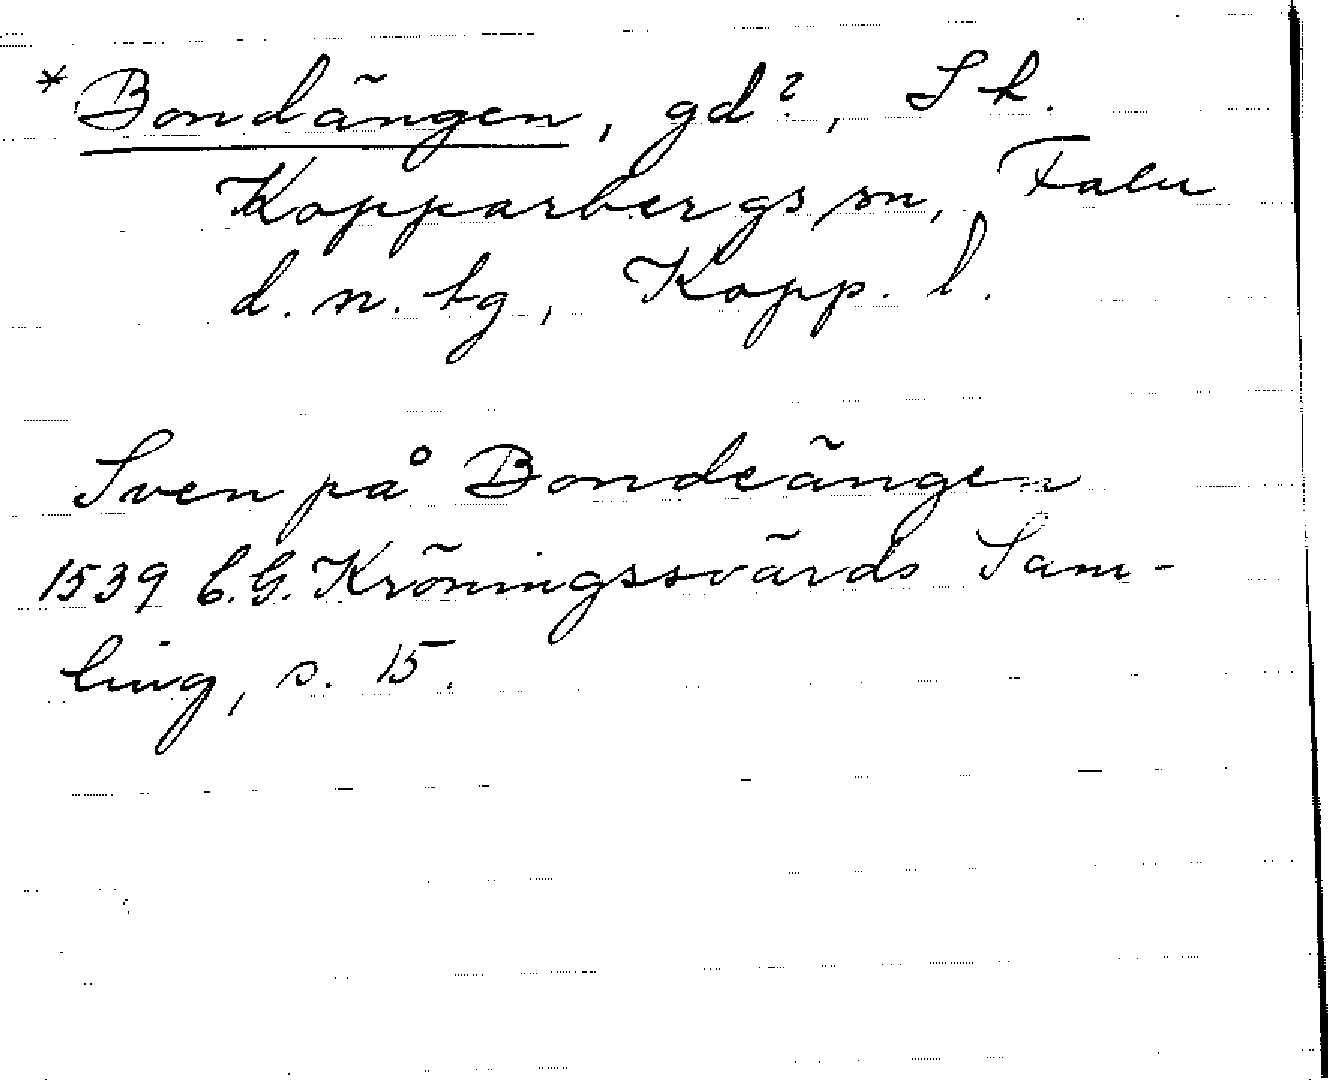 *Bondängen, gd?, St.
Kopparbergs sn, Falu
d. n. tg, Kopp. l.
Sven på Bondeängen
1539 C.G. Kröningssvärds Sam-
ling, s. 15.